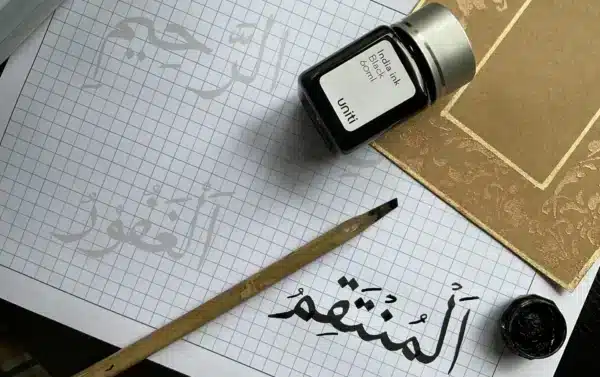 الرَّحِيمِ
India ink
Black
60ml
uniti
اَلْغَفُورُ
اَلْمُنْتَقِمُ